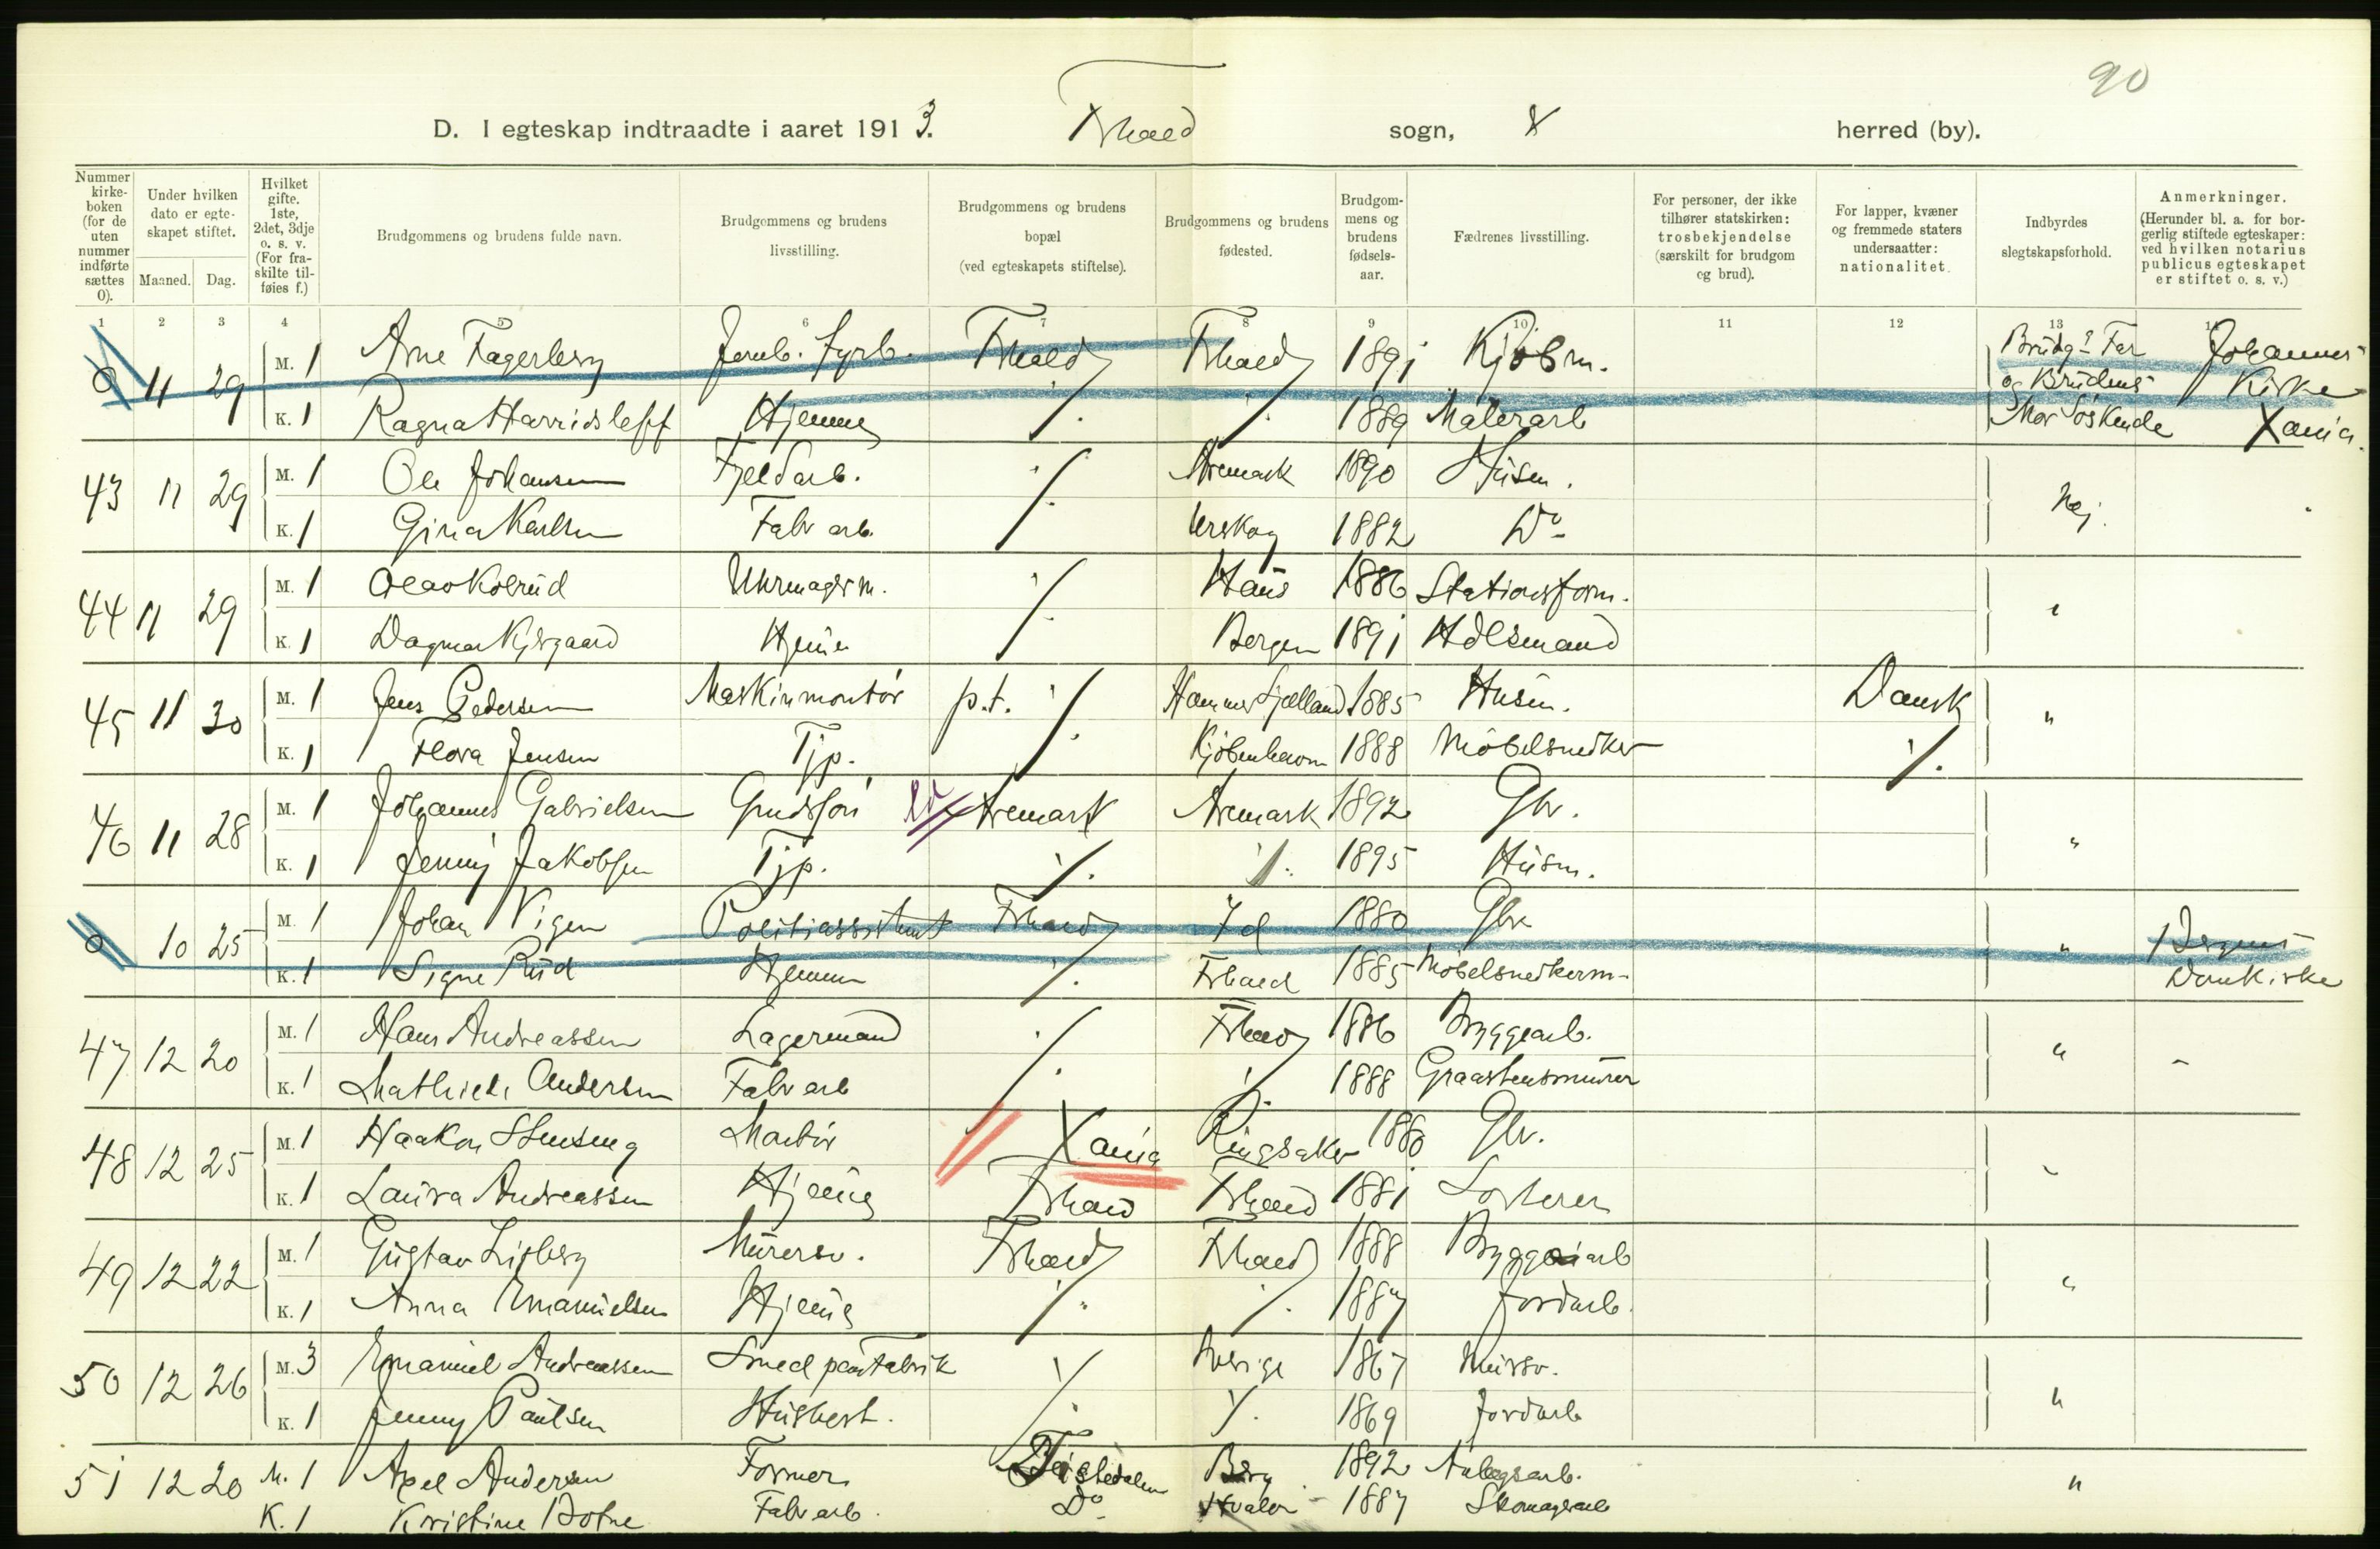 90
D. I egteskap indtraadte i aaret 1913. Frhald sogn, herred (by).
Nummer kirke-boken (for de uten nummer indførte sættes 0).
Under hvilken dato er egte-skapet stiftet.
Maaned. Dag.
Hvilket gifte. 1ste, 2det, 3dje o. s. v. (For fra-skilte til-føies f.)
Brudgommens og brudens fulde navn.
Brudgommens og brudens livsstilling.
Brudgommens og brudens bopæl (ved egteskapets stiftelse).
Brudgommens og brudens fødested.
Brudgom-mens og brudens fødsels-aar.
Fædrenes livsstilling.
For personer, der ikke tilhører statskirken: trosbekjendelse (særskilt for brudgom og brud).
For lapper, kvæner og fremmede staters undersaatter: nationalitet.
Indbyrdes slegtskapsforhold.
Anmerkninger. (Herunder bl. a. for bor-gerlig stiftede egteskaper: ved hvilken notarius publicus egteskapet er stiftet o. s. v.)
1 2 3 4 5 6 7 8 9 10 11 12 13 14
0 11 29 M. 1 Arne Fagerberg Jernb. fyrb. Frhald Frhald 1891 Kjøbm. Brudg.s Far og Brudens Mor Søskende Johannes Kirke Xania.
K. 1 Ragna Harridsleff Hjemme ·/. ·/. 1889 Malerarb
43 11 29 M. 1 Ole Johansen Fjeldarb. ·/. Aremark 1890 Husm. Nej.
K. 1 Gina Karlsen Fabr arb. Urskog 1882 Do
44 11 29 M. 1 Olav Kolrud Uhrmagerm. ·/. Haus 1886 Stationsform. "
K. 1 Dagmar Hjemme Bergen 1891 Hdlsmand
45 11 30 M. 1 Jens Pedersen Maskinmontør p.t. ·/. Hammer Sjælland 1885 Husm. Dansk "
K. 1 Flora Jensen Tjp. Kjøbenhavn 1888 Møbelsnedker ·/.
46 11 28 M. 1 Johannes Gabrielsen Grudsfor Aremark Aremark 1892 Gbr. "
K. 1 Jenny Jakobsen Tjp. ·/. ·/. 1895 Husm.
0 10 25 M. 1 Johan Vigen Politiassistent Frhald Id 1880 Gbr " Bergens Domkirke
K. 1 Signe Rud Hjemme ·/. Frhald 1885 Møbelsnedkerm.
47 12 20 M. 1 Hans Andreassen Lagermand ·/. Frhald 1886 Byggearb. " -
K. 1 Mathilde Andersen Fabr arb ·/. 1888 Graastensmurer
48 12 25 M. 1 Haakon Stenseng Montør Xania Ringsaker 1880 Gbr. "
K. 1 Laura Andreassen Hjemme Frhald Frhald 1881 Losserer
49 12 22 M. 1 Gustav Murersv. Frhald Frhald 1888 Byggearb "
K. 1 Anna Emanuelsen Hjemme ·/. ·/. 1887 Jordarb.
50 12 26 M. 3 Emanuel Andreassen Smed paa Fabrik ·/. Sverige 1867 Mursv. "
K. 1 Jenny Paulsen Husbest. ·/. 1869 Jordarb
51 12 20 M. 1 Axel Andersen Former Tistedalen Berg 1892 Anlegsarb. "
K. 1 Kristine Botne Fabr arb. Do Hvaler 1887 Skomagerarb